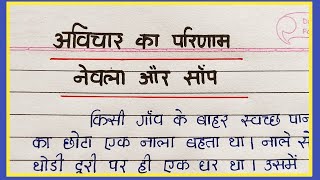 अविचार का परिणाम
नेवला और साँप
किसी गाँव के बाहर स्वच्छ पान
का छोटा एक नाला बहता था। नाले से
थोडी दूरी पर ही एक घर था। उसमें